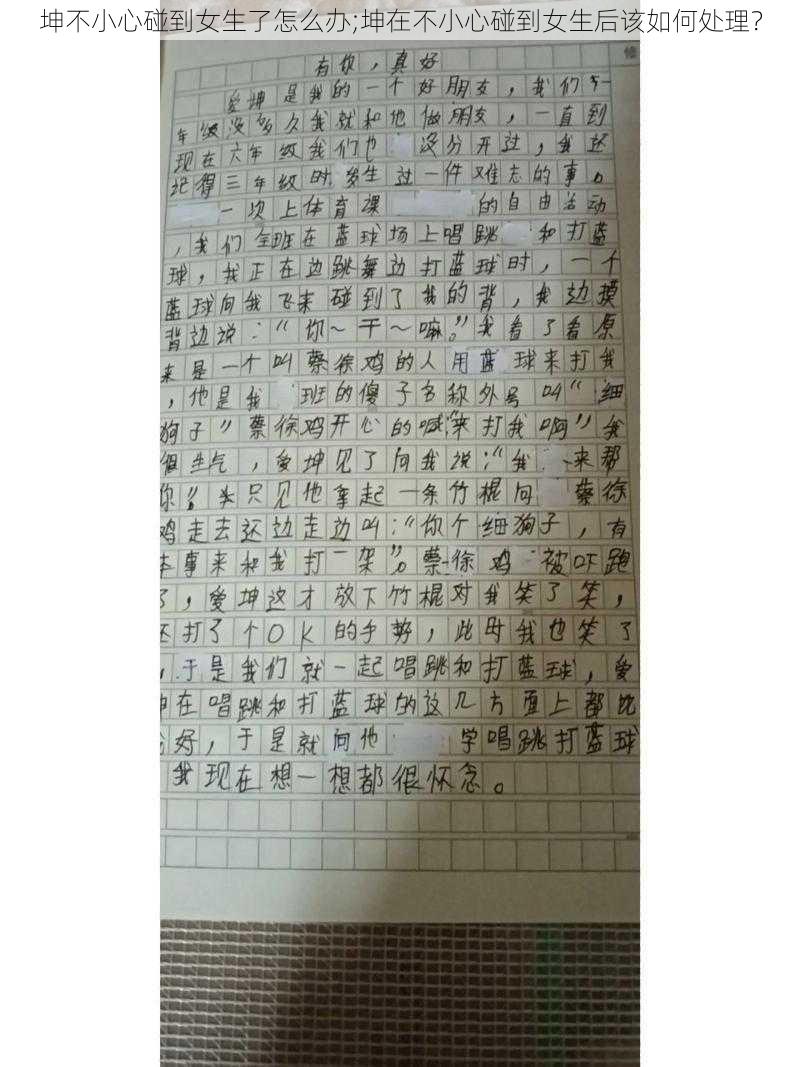 坤不小心碰到女生了怎么办;坤在不小心碰到女生后该如何处理?
有你，真好
爱坤是我的一个好朋友，我们一
年级没多久我就和他做朋友，一直到
现在六年级我们也没分开过，我还
记得三年级时，发生过一件难忘的事。
一次上体育课的自由活动
，我们全班在蓝球场上唱跳和打蓝
球，我正在边跳舞边打蓝球时，一个
蓝球向我飞来碰到了我的背，我边摸
背边说：“你～干～嘛。”我看了看原
来是一个叫蔡徐鸡的人用蓝球来打我
，他是我班的傻子名称外号叫“细
狗子”蔡徐鸡开心的喊“来打我啊”我
很生气，爱坤见了向我说：“我来帮
你。”只见他拿起一条竹棍向蔡徐
鸡走去还边走边叫：“你个细狗子，有
本事来和我打一架”。蔡徐鸡被吓跑
了，爱坤这才放下竹棍对我笑了笑，
还打了个OK的手势，此时我也笑了
，于是我们就一起唱跳和打蓝球，爱
坤在唱跳和打蓝球的这几方面上都比
我好，于是就向他学唱跳打蓝球
我现在想一想都很怀念。